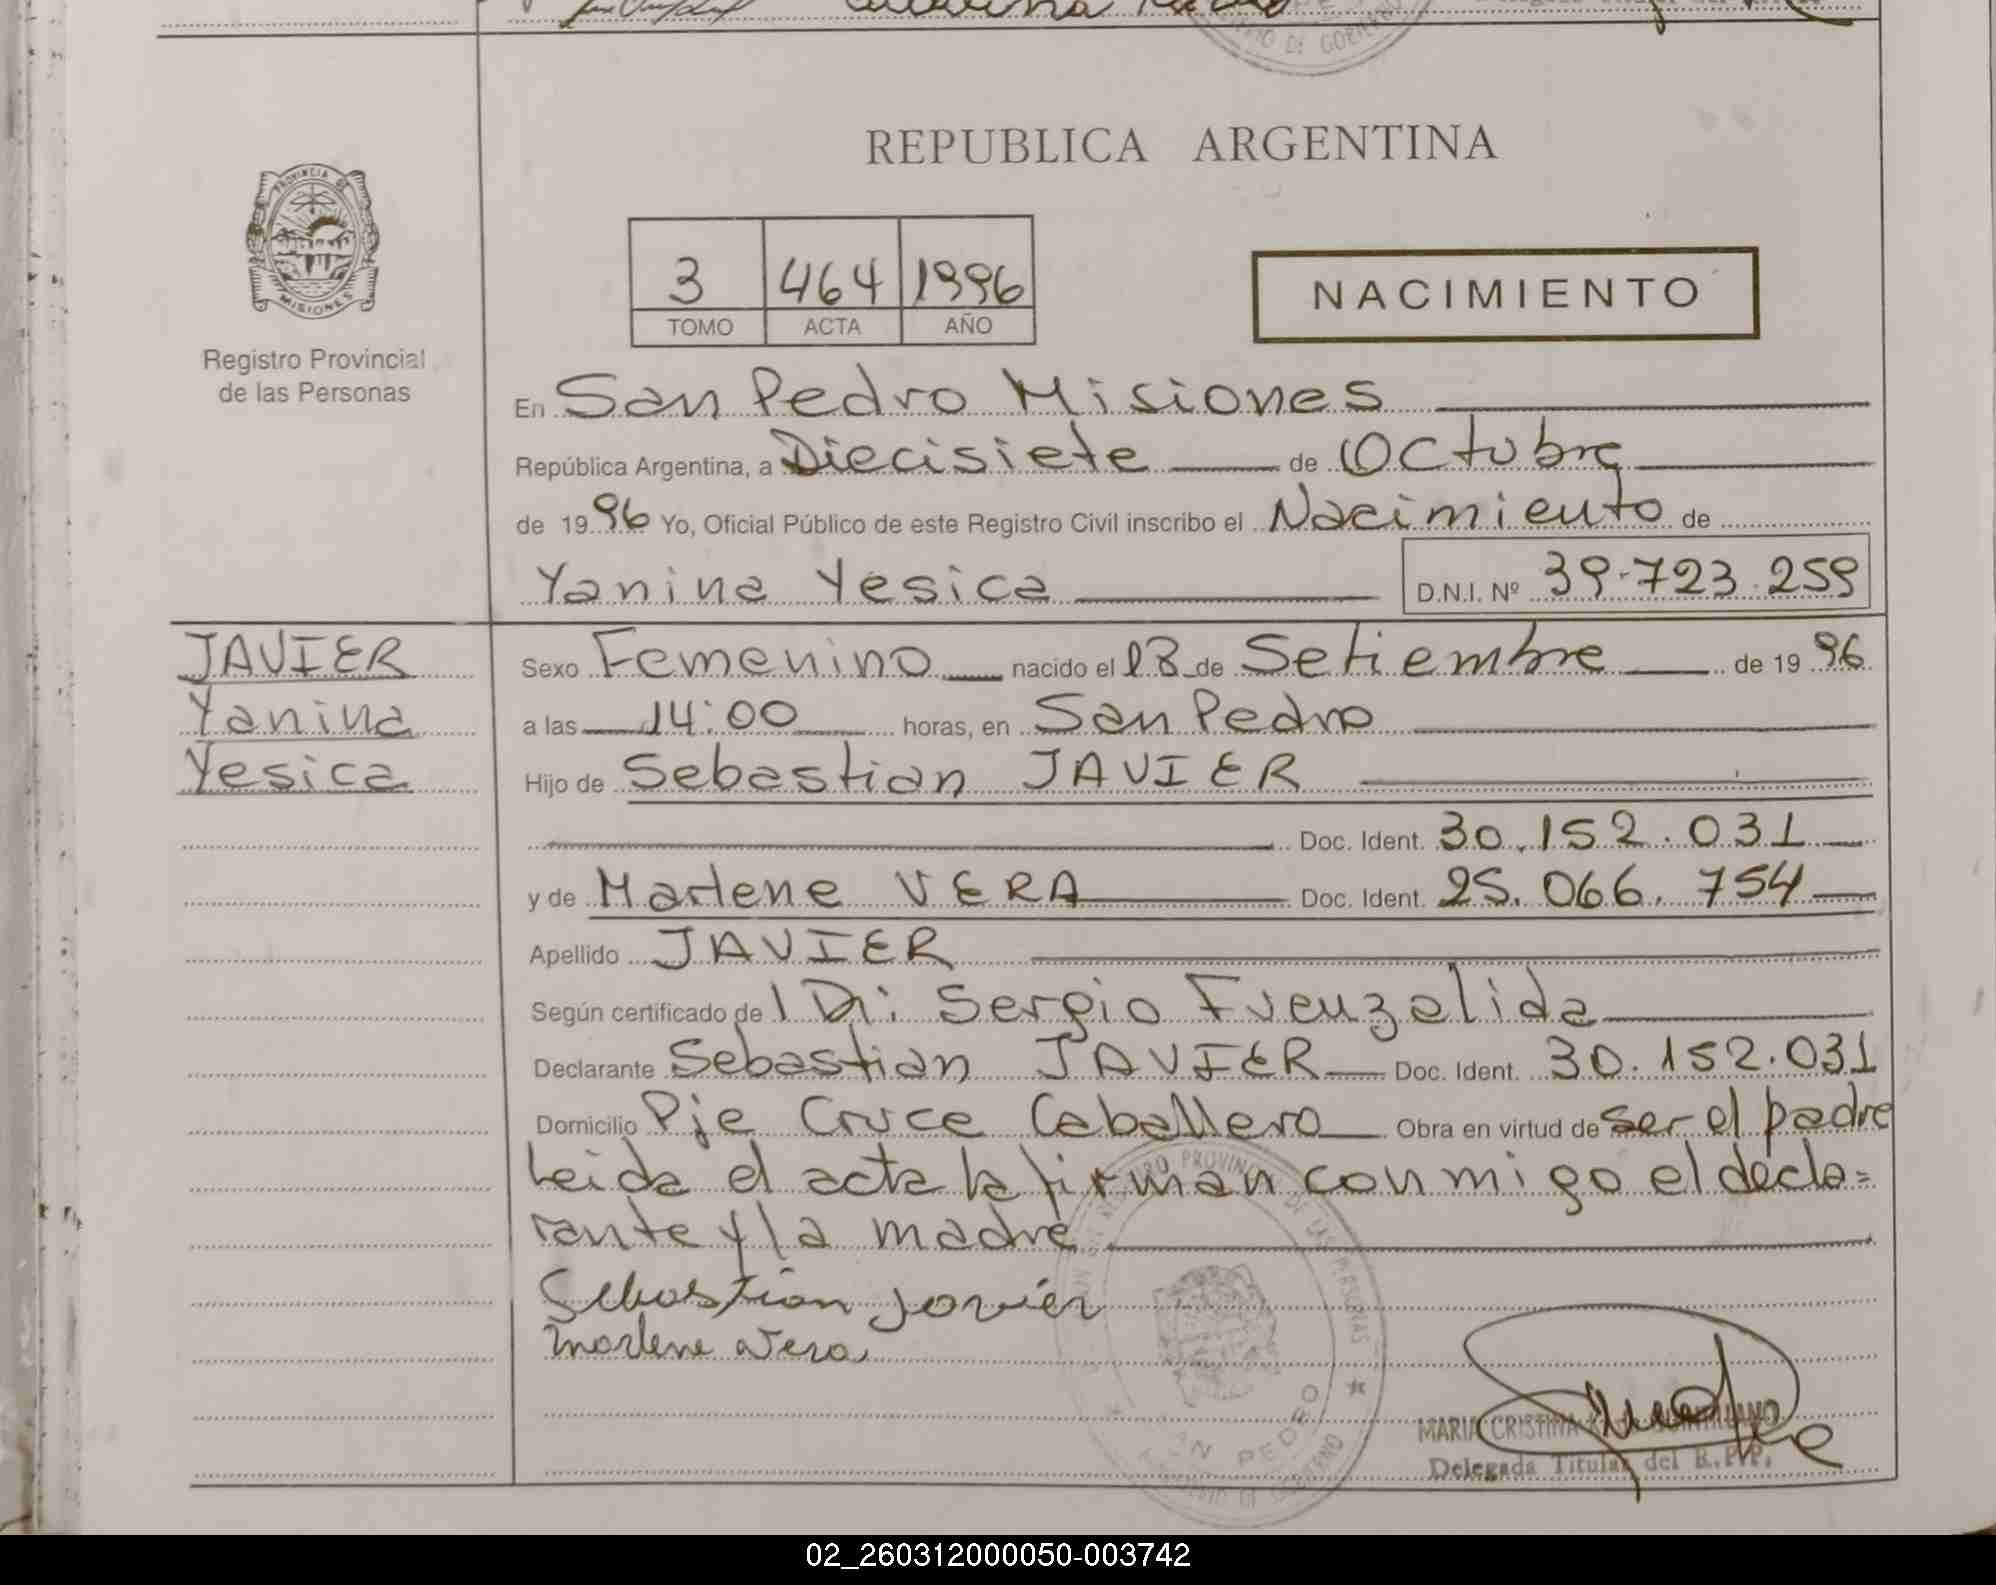 REPUBLICA ARGENTINA
PROVINCIA DE
MISIONES
Registro Provincial
de las Personas
3 464 1996
TOMO ACTA AÑO
NACIMIENTO
En San Pedro Misiones
República Argentina, a Diecisiete de Octubre
de 1996 Yo, Oficial Público de este Registro Civil inscribo el Nacimiento de
Yanina Yesica D.N.I. Nº 39.723.259
JAVIER
Yanina
Yesica
Sexo Femenino nacido el 18 de Setiembre de 1996
a las 14:00 horas, en San Pedro
Hijo de Sebastian JAVIER
Doc. Ident. 30.152.031
y de Marlene VERA Doc. Ident. 25.066.754
Apellido JAVIER
Según certificado de l Dr: Sergio Fuenzalida
Declarante Sebastian JAVIER Doc. Ident. 30.152.031
Domicilio Pje Cruce Caballero Obra en virtud de ser el padre
Leida el acta la firman conmigo el decla=
rante y la madre
Sebastian Javier
Marlene Vera
SAN PEDRO
MARIA CRISTINA
Delegada Titular del R.P.P.
02_260312000050-003742